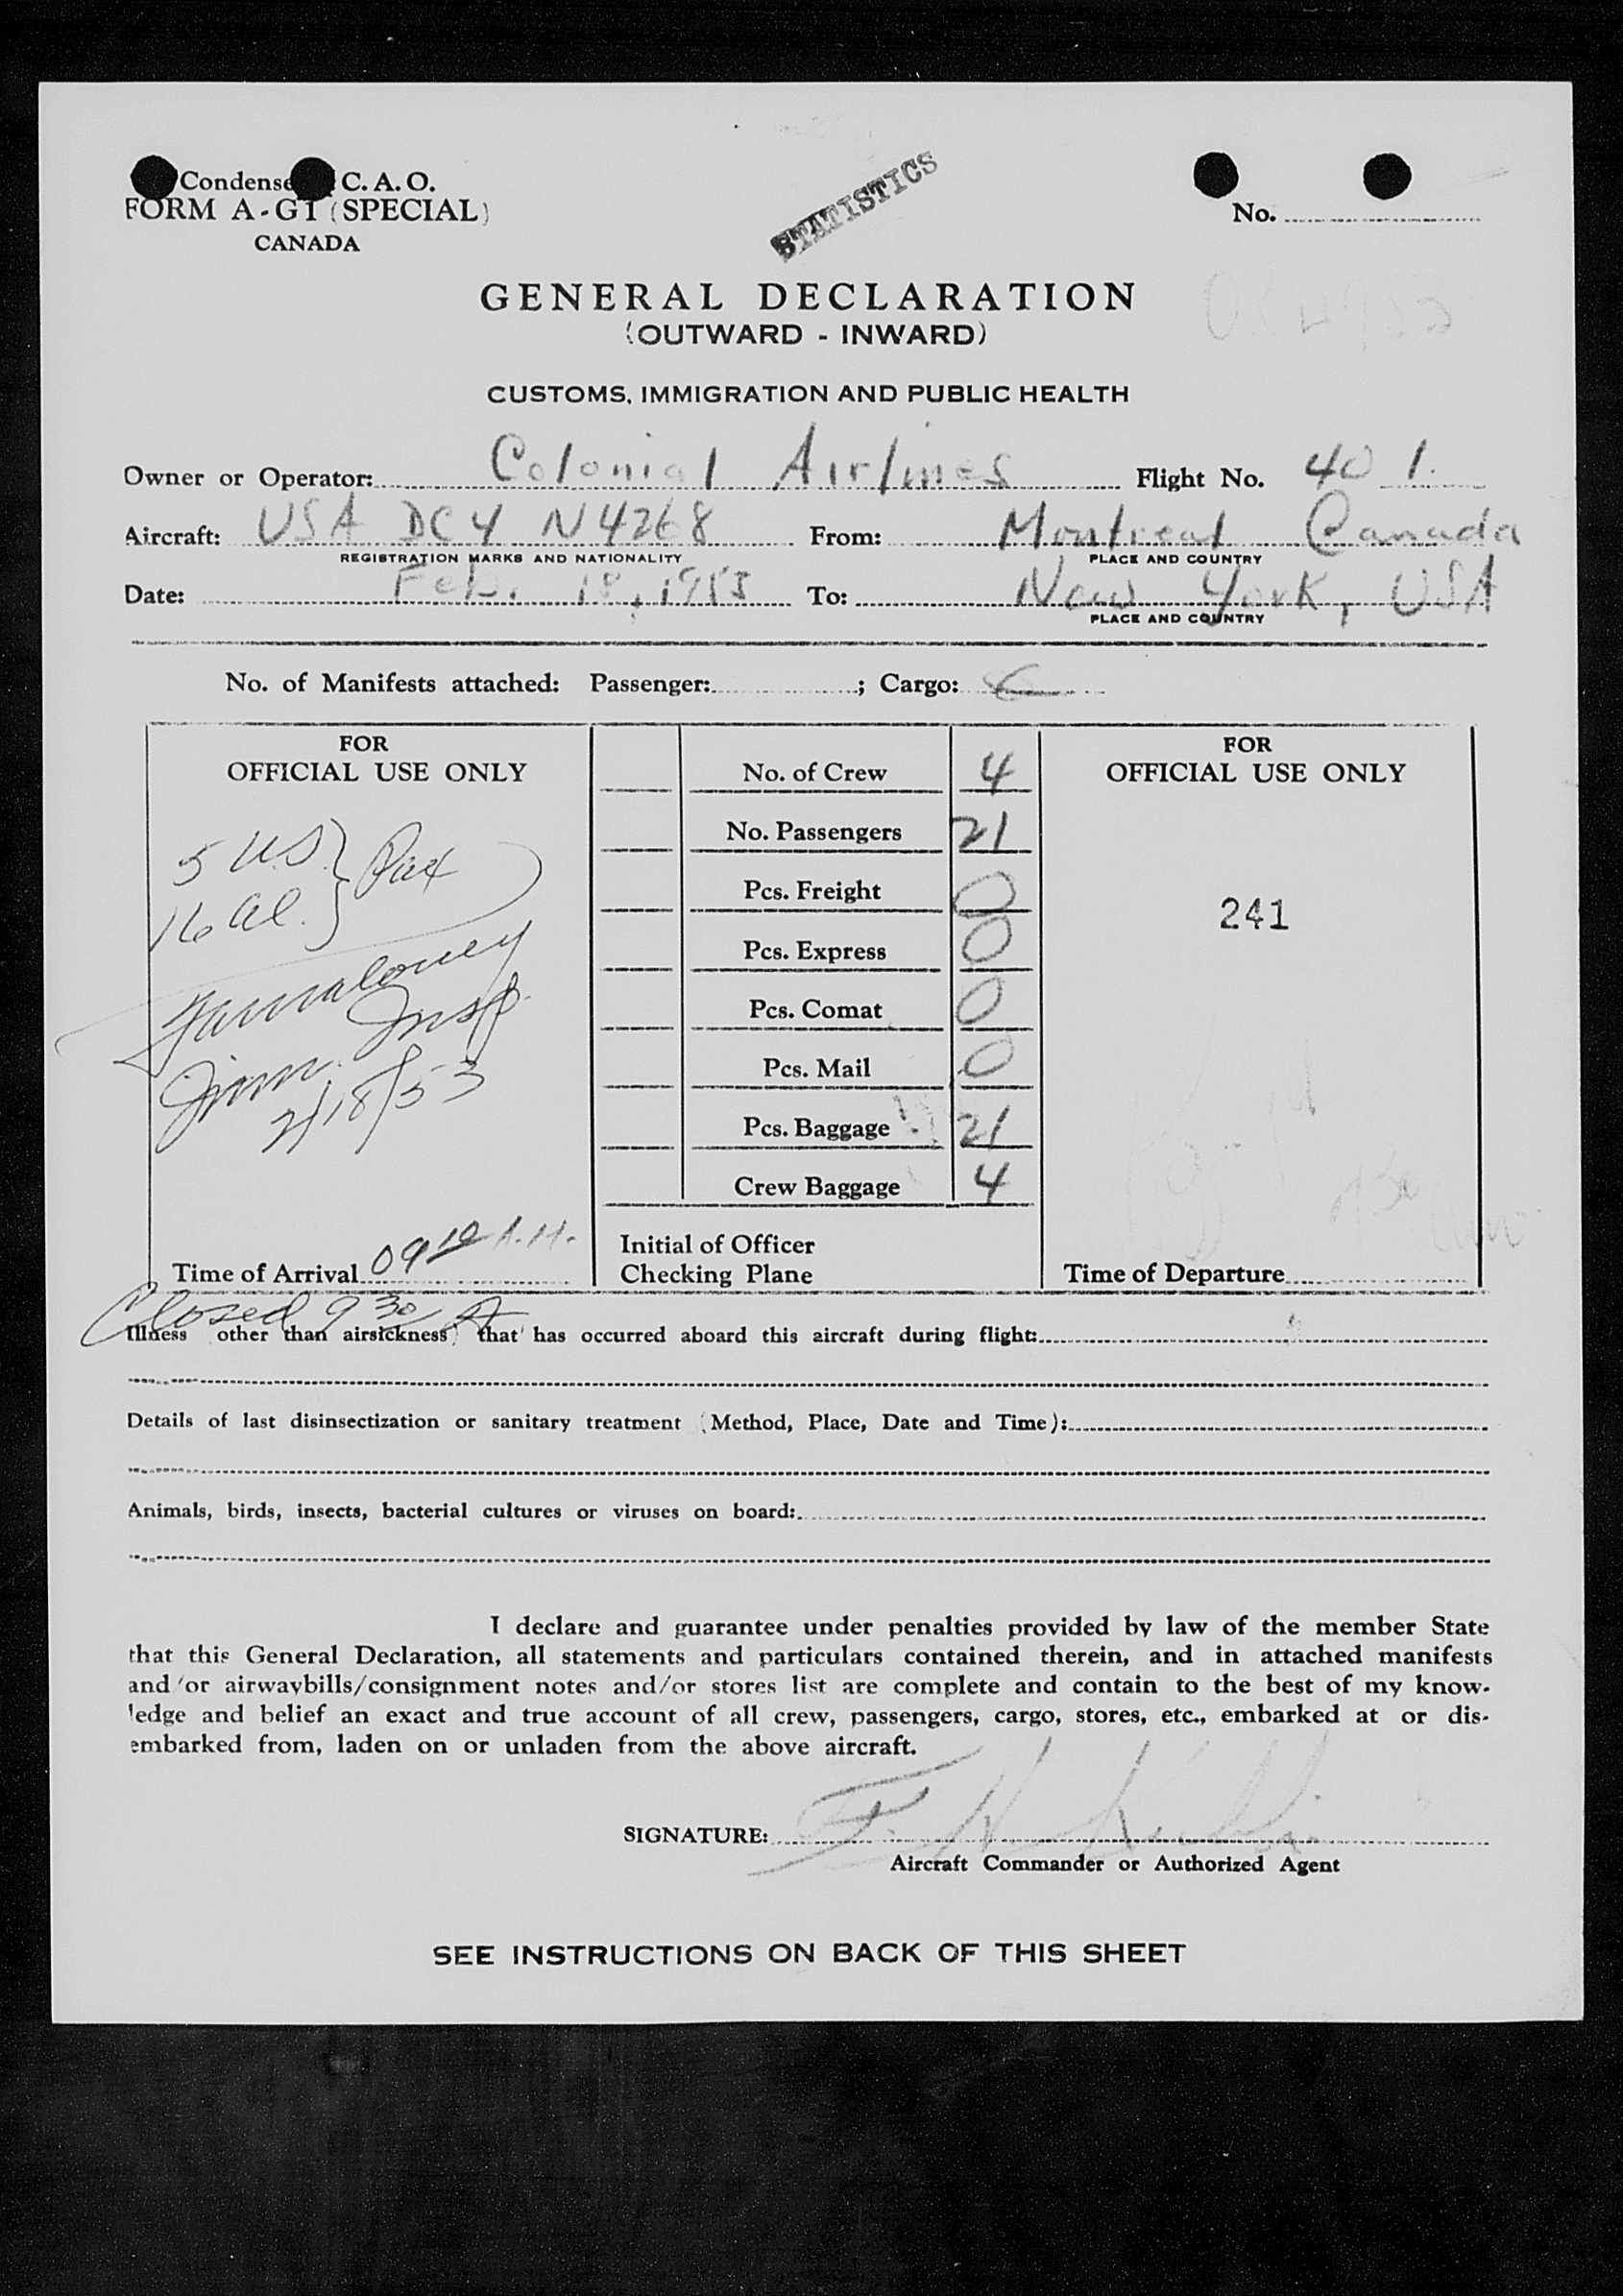 Condense C. A. O.
FORM A-G1 (SPECIAL)
CANADA
STATISTICS
No.
GENERAL DECLARATION
(OUTWARD - INWARD)
CUSTOMS, IMMIGRATION AND PUBLIC HEALTH
Owner or Operator: Colonial Airlines Flight No. 401.
Aircraft: USA DC4 N4268 From: Montreal Canada
REGISTRATION MARKS AND NATIONALITY PLACE AND COUNTRY
Date: Feb. 18, 1953 To: New York, USA
PLACE AND COUNTRY
No. of Manifests attached: Passenger: ; Cargo:
FOR
OFFICIAL USE ONLY
5 U.S. } Pax
16 al.
Imm. Insp.
2/18/53
Time of Arrival 09 10 A.M.
No. of Crew 4
No. Passengers 21
Pcs. Freight 0
Pcs. Express 0
Pcs. Comat 0
Pcs. Mail 0
Pcs. Baggage 21
Crew Baggage 4
Initial of Officer
Checking Plane
FOR
OFFICIAL USE ONLY
241
Time of Departure
Closed 9 30 A
Illness other than airsickness that has occurred aboard this aircraft during flight:
Details of last disinsectization or sanitary treatment (Method, Place, Date and Time):
Animals, birds, insects, bacterial cultures or viruses on board:
I declare and guarantee under penalties provided by law of the member State
that this General Declaration, all statements and particulars contained therein, and in attached manifests
and/or airwaybills/consignment notes and/or stores list are complete and contain to the best of my know-
ledge and belief an exact and true account of all crew, passengers, cargo, stores, etc., embarked at or dis-
embarked from, laden on or unladen from the above aircraft.
SIGNATURE:
Aircraft Commander or Authorized Agent
SEE INSTRUCTIONS ON BACK OF THIS SHEET